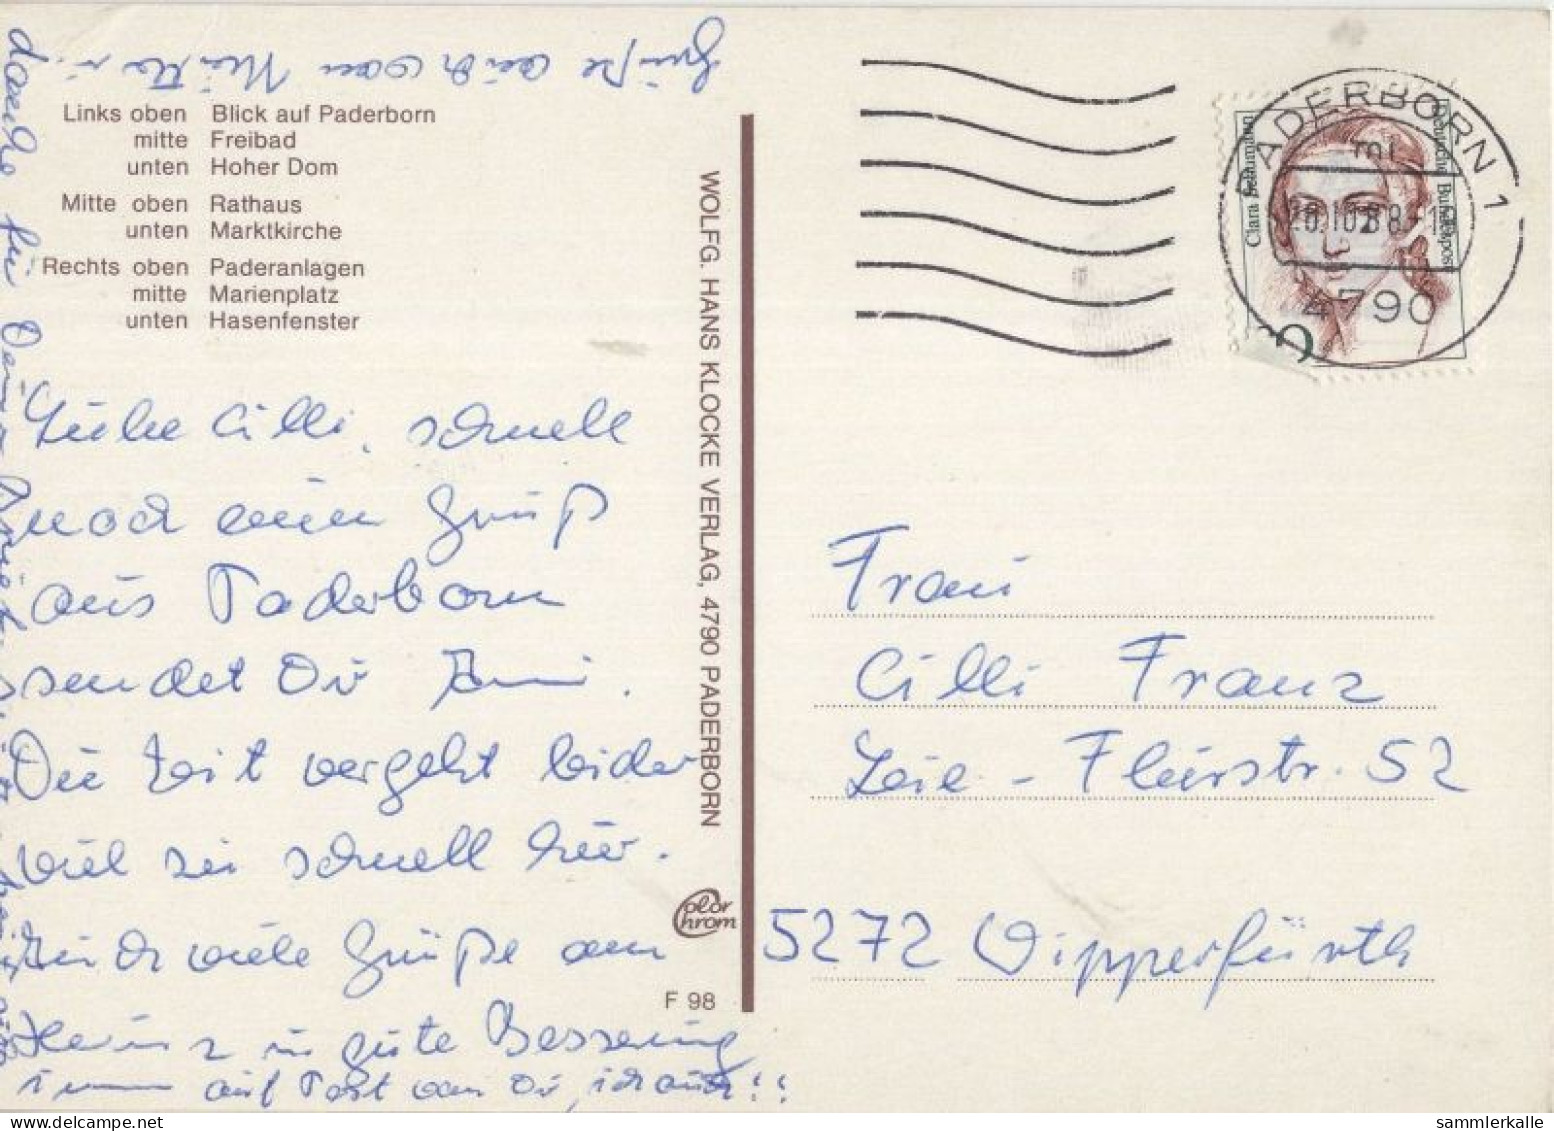 Grüße auch von Mutter
Links oben Blick auf Paderborn
mitte Freibad
unten Hoher Dom
Mitte oben Rathaus
unten Marktkirche
Rechts oben Paderanlagen
mitte Marienplatz
unten Hasenfenster
Liebe Cilli, schnell
noch einen Gruß
aus Paderborn
sendet Dir
Die Zeit vergeht leider
viel zu schnell hier.
Auch viele Grüße an
Heinz u gute Besserung
auf Post von Dir, ich auch!!
danke für Deine
WOLFG. HANS KLOCKE VERLAG, 4790 PADERBORN
Color Chrom
F 98
PADERBORN 1
mi
4790
Clara Schumann
Deutsche Bundespost
Frau
Cilli Franz
Leie-Flurstr. 52
5272 Wipperfürth
sammlerkalle